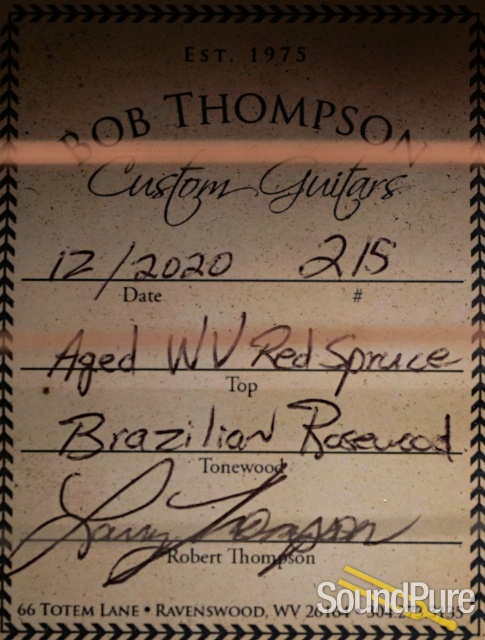 EST. 1975
BOB THOMPSON
Custom Guitars
12/2020 215
Date #
Aged WV Red Spruce
Top
Brazilian Rosewood
Tonewood
Larry Thompson
Robert Thompson
66 TOTEM LANE • RAVENSWOOD, WV 26164
SoundPure